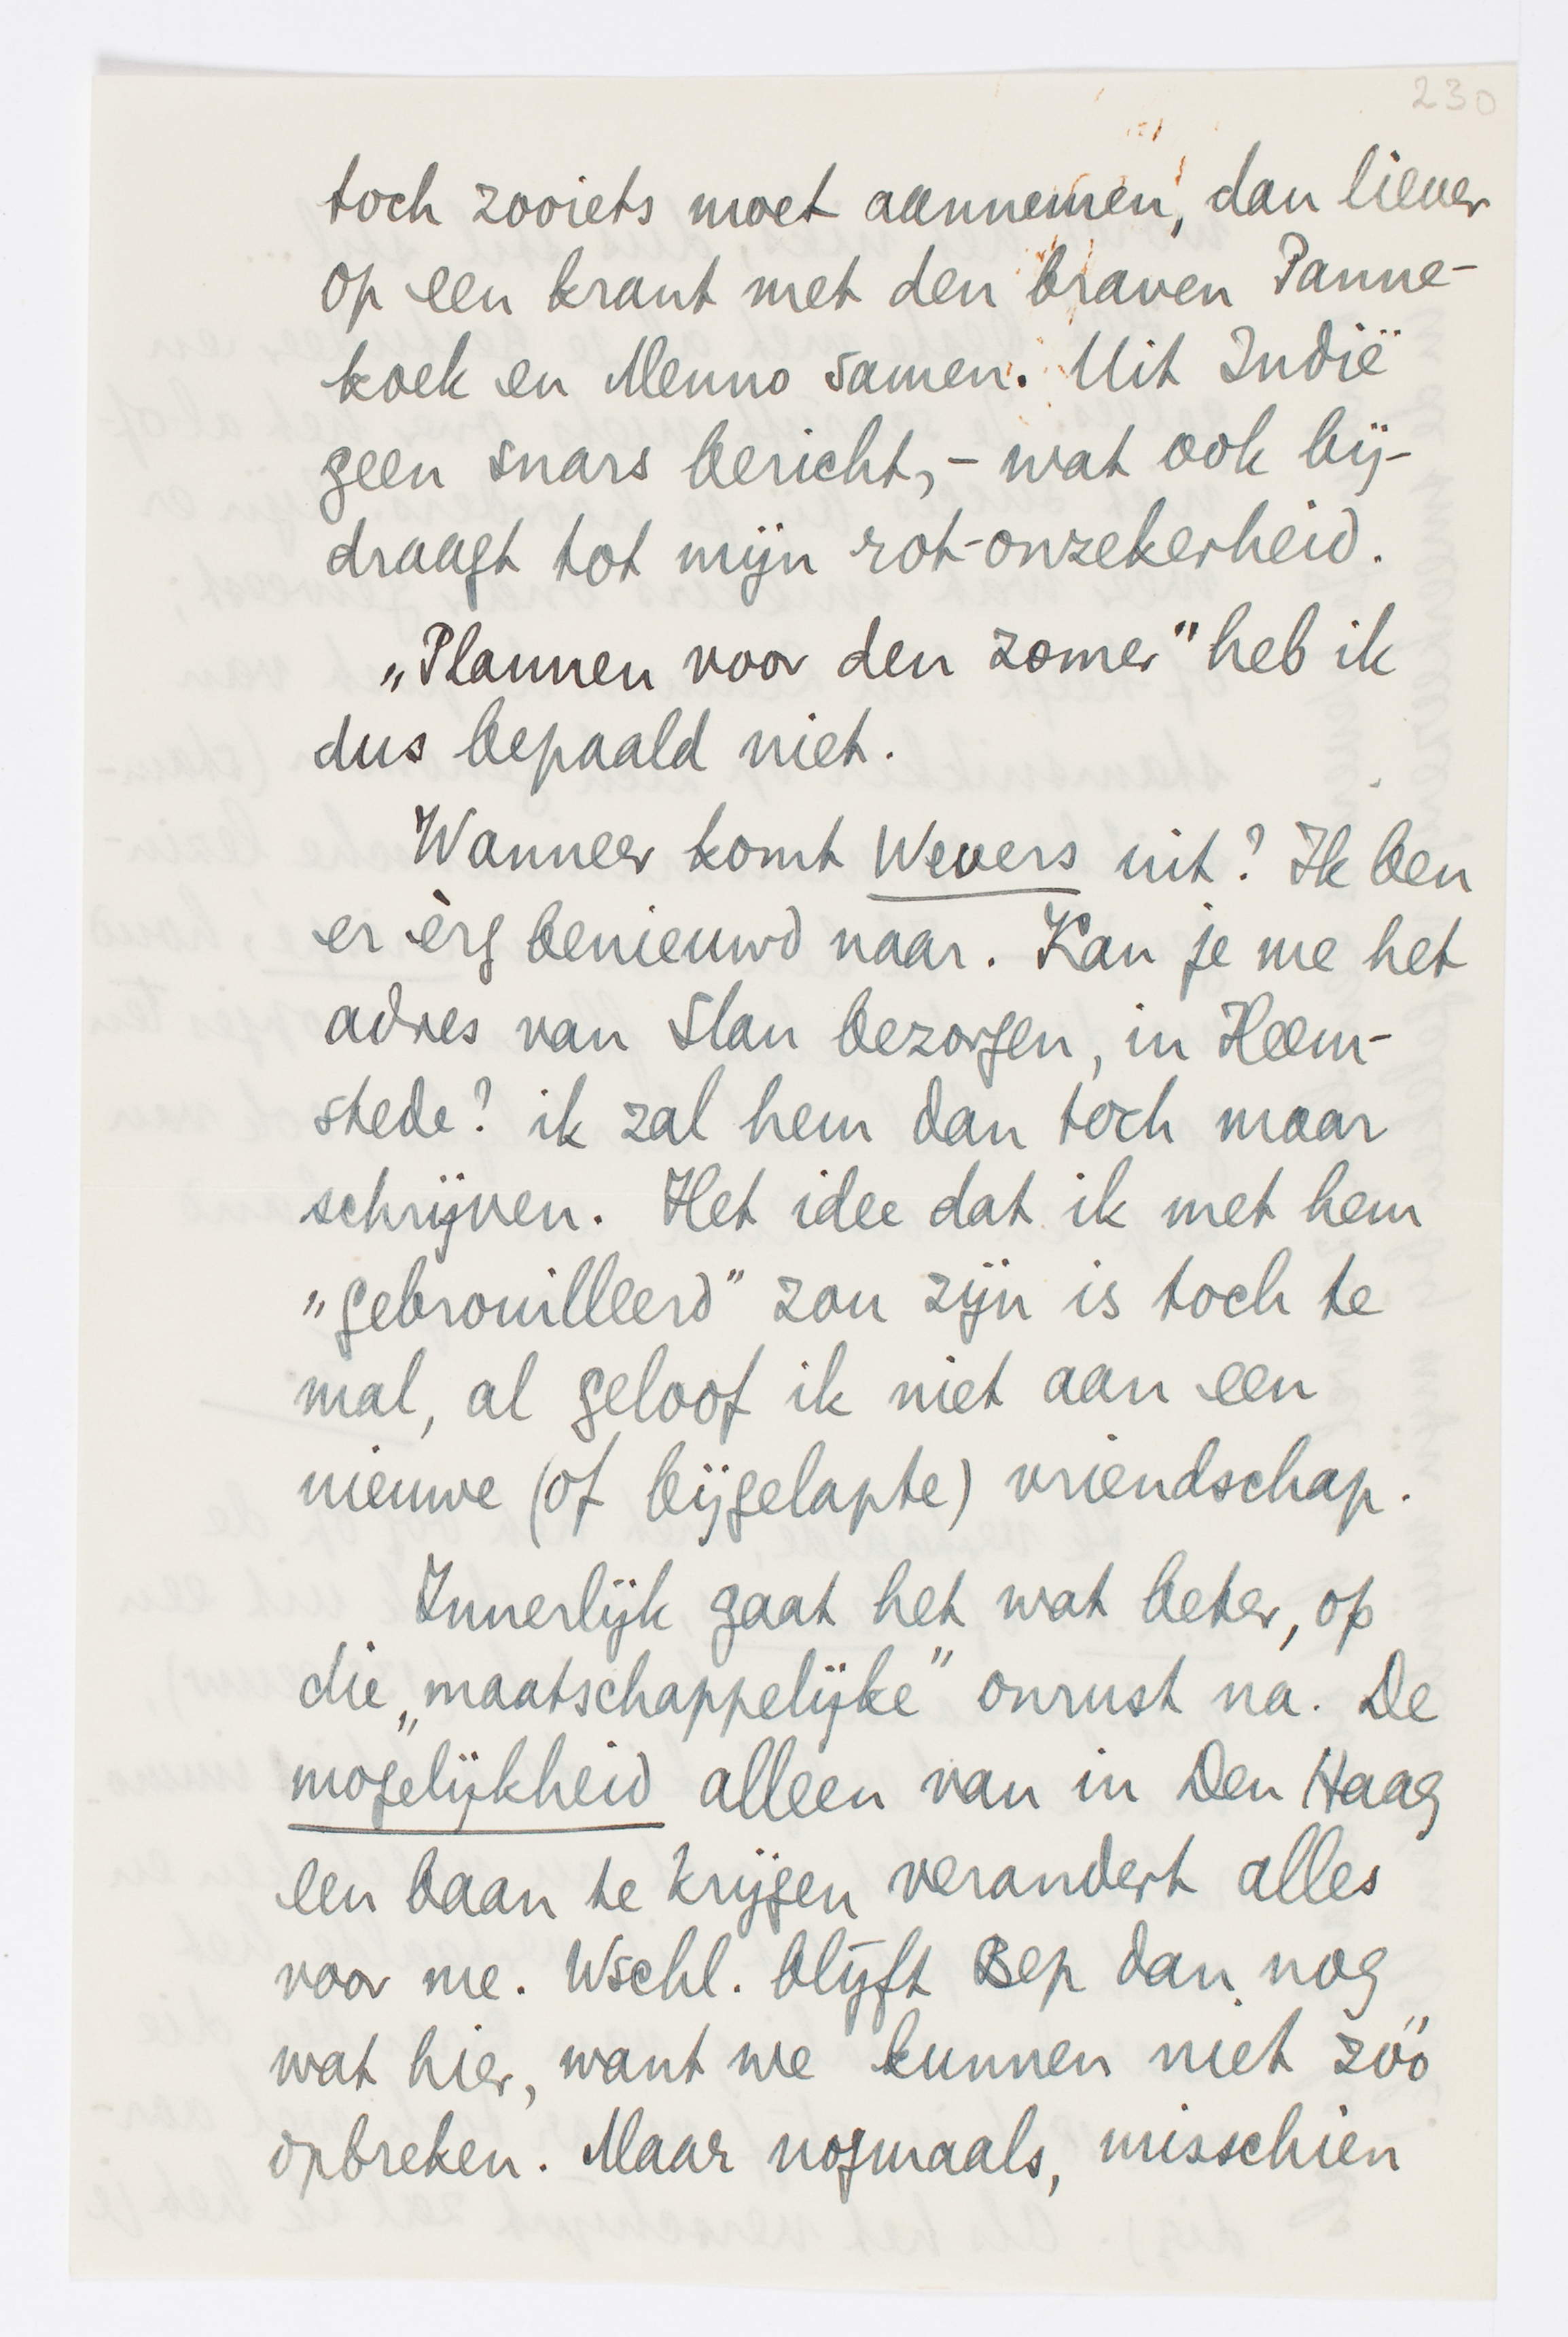 230
toch zooiets moet aannemen, dan liever
op een krant met den braven Panne-
koek en Menno samen. Uit Indië
geen snars bericht, - wat ook bij-
draagt tot mijn rot-onzekerheid.
„Plannen voor den zomer" heb ik
dus bepaald niet.
Wanneer komt Wevers uit? Ik ben
er èrg benieuwd naar. Kan je me het
adres van Slau bezorgen, in Heem-
stede? ik zal hem dan toch maar
schrijven. Het idee dat ik met hem
„gebrouilleerd" zou zijn is toch te
mal, al geloof ik niet aan een
nieuwe (of bijgelapte) vriendschap.
Innerlijk gaat het wat beter, op
die „maatschappelijke" onrust na. De
mogelijkheid alleen van in Den Haag
een baan te krijgen verandert alles
voor me. Wschl. blijft Bep dan nog
wat hier, want we kunnen niet zóó
opbreken. Maar nogmaals, misschien